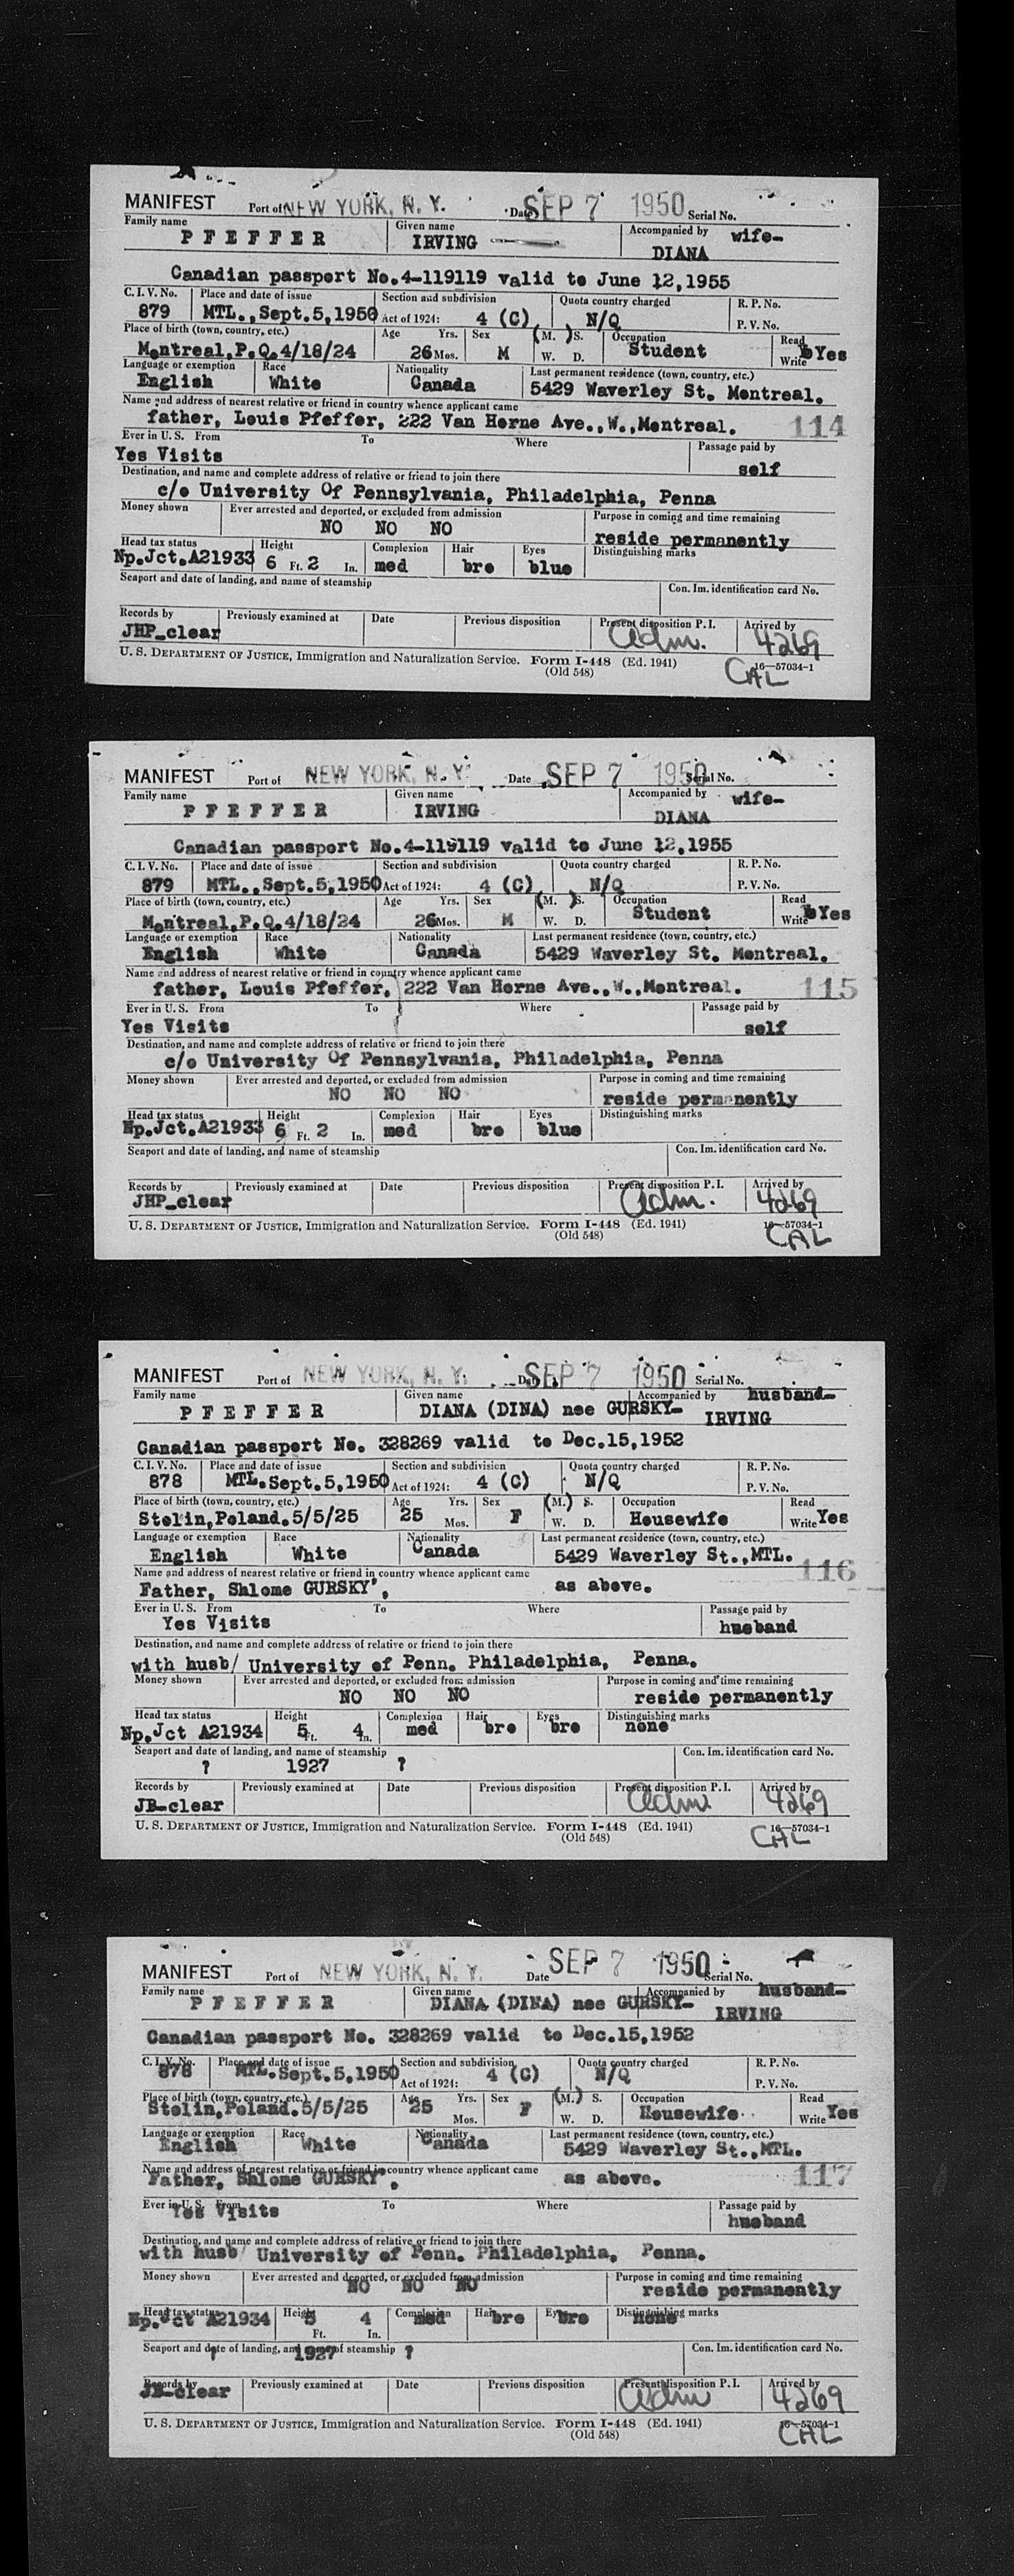 MANIFEST Port of NEW YORK, N. Y. Date SEP 7 1950 Serial No.
Family name Given name Accompanied by wife-
PFEFFER IRVING DIANA
Canadian passport No.4-119119 valid to June 12,1955
C. I. V. No. Place and date of issue Section and subdivision Quota country charged R. P. No.
879 MTL., Sept.5,1950 Act of 1924: 4 (C) N/Q P. V. No.
Place of birth (town, country, etc.) Age Yrs. Sex (M.) S. Occupation Read
Montreal,P.Q.4/18/24 26 Mos. M W. D. Student Write Yes
Language or exemption Race Nationality Last permanent residence (town, country, etc.)
English White Canada 5429 Waverley St. Montreal.
Name and address of nearest relative or friend in country whence applicant came
father, Louis Pfeffer, 222 Van Horne Ave.,W.,Montreal. 114
Ever in U. S. From To Where Passage paid by
Yes Visits self
Destination, and name and complete address of relative or friend to join there
c/o University Of Pennsylvania, Philadelphia, Penna
Money shown Ever arrested and deported, or excluded from admission Purpose in coming and time remaining
NO NO NO reside permanently
Head tax status Height Complexion Hair Eyes Distinguishing marks
Np.Jct.A21933 6 Ft. 2 In. med bro blue
Seaport and date of landing, and name of steamship Con. Im. identification card No.
Records by Previously examined at Date Previous disposition Present disposition P. I. Arrived by
JHP_clear adm. 4269
U. S. DEPARTMENT OF JUSTICE, Immigration and Naturalization Service. Form I-448 (Ed. 1941) 16—57034-1
(Old 548) CAL
MANIFEST Port of NEW YORK, N. Y. Date SEP 7 1950 Serial No.
Family name Given name Accompanied by wife-
PFEFFER IRVING DIANA
Canadian passport No.4-119119 valid to June 12,1955
C. I. V. No. Place and date of issue Section and subdivision Quota country charged R. P. No.
879 MTL., Sept.5,1950 Act of 1924: 4 (C) N/Q P. V. No.
Place of birth (town, country, etc.) Age Yrs. Sex (M.) S. Occupation Read
Montreal,P.Q.4/18/24 26 Mos. M W. D. Student Write Yes
Language or exemption Race Nationality Last permanent residence (town, country, etc.)
English White Canada 5429 Waverley St. Montreal.
Name and address of nearest relative or friend in country whence applicant came
father, Louis Pfeffer, 222 Van Horne Ave.,W.,Montreal. 115
Ever in U. S. From To Where Passage paid by
Yes Visits self
Destination, and name and complete address of relative or friend to join there
c/o University Of Pennsylvania, Philadelphia, Penna
Money shown Ever arrested and deported, or excluded from admission Purpose in coming and time remaining
NO NO NO reside permanently
Head tax status Height Complexion Hair Eyes Distinguishing marks
Np.Jct.A21933 6 Ft. 2 In. med bro blue
Seaport and date of landing, and name of steamship Con. Im. identification card No.
Records by Previously examined at Date Previous disposition Present disposition P. I. Arrived by
JHP_clear adm. 4269
U. S. DEPARTMENT OF JUSTICE, Immigration and Naturalization Service. Form I-448 (Ed. 1941) 16—57034-1
(Old 548) CAL
MANIFEST Port of NEW YORK, N. Y. Date SEP 7 1950 Serial No.
Family name Given name Accompanied by husband-
PFEFFER DIANA (DINA) nee GURSKY- IRVING
Canadian passport No. 328269 valid to Dec.15,1952
C. I. V. No. Place and date of issue Section and subdivision Quota country charged R. P. No.
878 MTL.Sept.5,1950 Act of 1924: 4 (C) N/Q P. V. No.
Place of birth (town, country, etc.) Age Yrs. Sex (M.) S. Occupation Read
Stolin,Poland.5/5/25 25 Mos. F W. D. Housewife Write Yes
Language or exemption Race Nationality Last permanent residence (town, country, etc.)
English White Canada 5429 Waverley St.,MTL.
Name and address of nearest relative or friend in country whence applicant came 116
Father, Shlome GURSKY', as above.
Ever in U. S. From To Where Passage paid by
Yes Visits husband
Destination, and name and complete address of relative or friend to join there
with husb/ University of Penn. Philadelphia, Penna.
Money shown Ever arrested and deported, or excluded from admission Purpose in coming and time remaining
NO NO NO reside permanently
Head tax status Height Complexion Hair Eyes Distinguishing marks
Np.Jct A21934 5 Ft. 4 In. med bro bro none
Seaport and date of landing, and name of steamship Con. Im. identification card No.
? 1927 ?
Records by Previously examined at Date Previous disposition Present disposition P. I. Arrived by
JB-clear adm 4269
U. S. DEPARTMENT OF JUSTICE, Immigration and Naturalization Service. Form I-448 (Ed. 1941) 16—57034-1
(Old 548) CAL
MANIFEST Port of NEW YORK, N. Y. Date SEP 7 1950 Serial No.
Family name Given name Accompanied by husband-
PFEFFER DIANA (DINA) nee GURSKY- IRVING
Canadian passport No. 328269 valid to Dec.15,1952
C. I. V. No. Place and date of issue Section and subdivision Quota country charged R. P. No.
878 MTL.Sept.5,1950 Act of 1924: 4 (C) N/Q P. V. No.
Place of birth (town, country, etc.) Age Yrs. Sex (M.) S. Occupation Read
Stolin,Poland.5/5/25 25 Mos. F W. D. Housewife Write Yes
Language or exemption Race Nationality Last permanent residence (town, country, etc.)
English White Canada 5429 Waverley St.,MTL.
Name and address of nearest relative or friend in country whence applicant came 117
Father, Shlome GURSKY', as above.
Ever in U. S. From To Where Passage paid by
Yes Visits husband
Destination, and name and complete address of relative or friend to join there
with husb/ University of Penn. Philadelphia, Penna.
Money shown Ever arrested and deported, or excluded from admission Purpose in coming and time remaining
NO NO NO reside permanently
Head tax status Height Complexion Hair Eyes Distinguishing marks
Np.Jct A21934 5 Ft. 4 In. med bro bro none
Seaport and date of landing, and name of steamship Con. Im. identification card No.
? 1927 ?
Records by Previously examined at Date Previous disposition Present disposition P. I. Arrived by
JB-clear adm 4269
U. S. DEPARTMENT OF JUSTICE, Immigration and Naturalization Service. Form I-448 (Ed. 1941) 16—57034-1
(Old 548) CAL